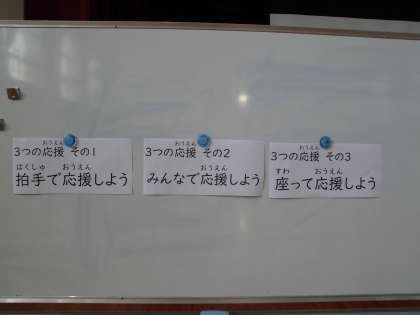 おうえん
3つの応援 その1
はくしゅ おうえん
拍手で応援しよう
おうえん
3つの応援 その2
おうえん
みんなで応援しよう
おうえん
3つの応援 その3
すわ おうえん
座って応援しよう